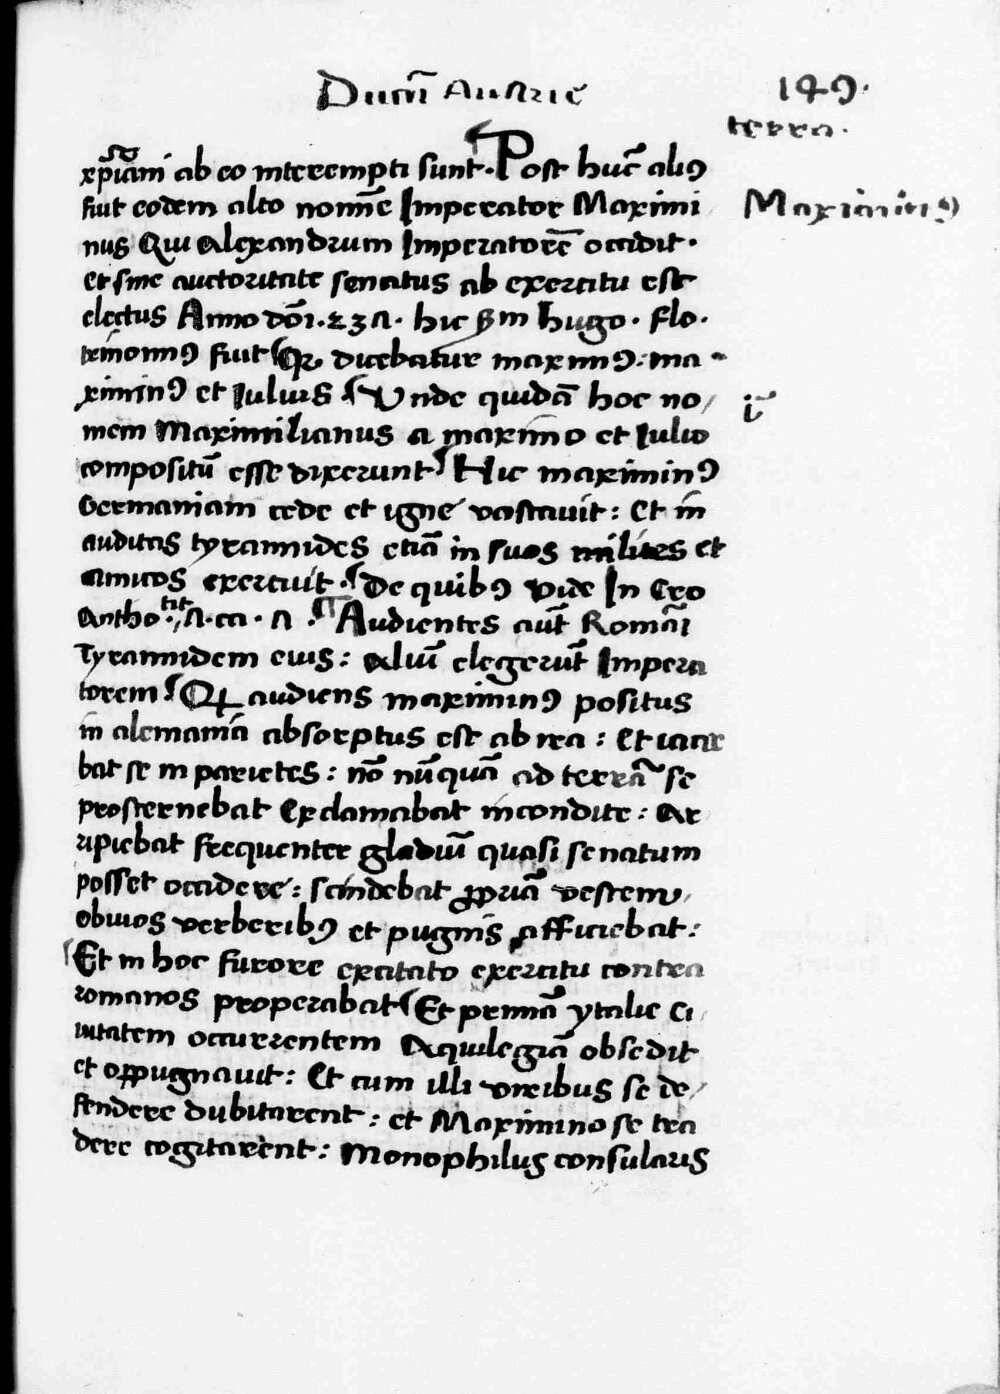 Ducū Austrie
149.
terra.
xp̄iani ab eo interempti sunt. Post huc̄ aliꝰ
fuit eodem alto nomīe Imperator Maximi
Maximinꝰ
nus Qui alexandrum Imperatorē occidit.
et sine auctoritate senatus ab exercitu est
electus Anno dōi. 237. hic ẜm hugo. flo.
fuit qꝛ dicebatur maximꝰ: ma
ximinꝰ et Iuluis Vnde quidā hoc no/
mem Maximilianus a maximo et Iulio
compositū esse dixerunt Hic maximinꝰ
Germaniam cede et igne vastauit: Et in
auditas tyrannides etiā in suos milites et
amicos exercuit. De quibꝰ vide In Cro
Antho. tit. 7. ca. 7. Audientes aūt Romāi
Tyrannidem eius: aliū elegerūt Impera
torem Qḋ audiens maximinꝰ positus
in alemania absorptus est ab ira: Et iacta
bat se in parietes: nō nūquā ad terrā se
prosternebat Exclamabat incondite: Ar
ripiebat frequenter gladiū quasi senatum
posset occidere: scindebat ꝓpriā vestem
obuios verberibꝰ et pugnis afficiebat:
Et in hoc furore excitato exercitu contra
romanos properabat Et primā ytalie ci/
uitatem occurrentem Aquilegiā obsedit
et oppugnauit: Et cum illi viribus se de/
fendere dubitarent: et Maximino se tra
dere cogitarent: Monophilus consularis